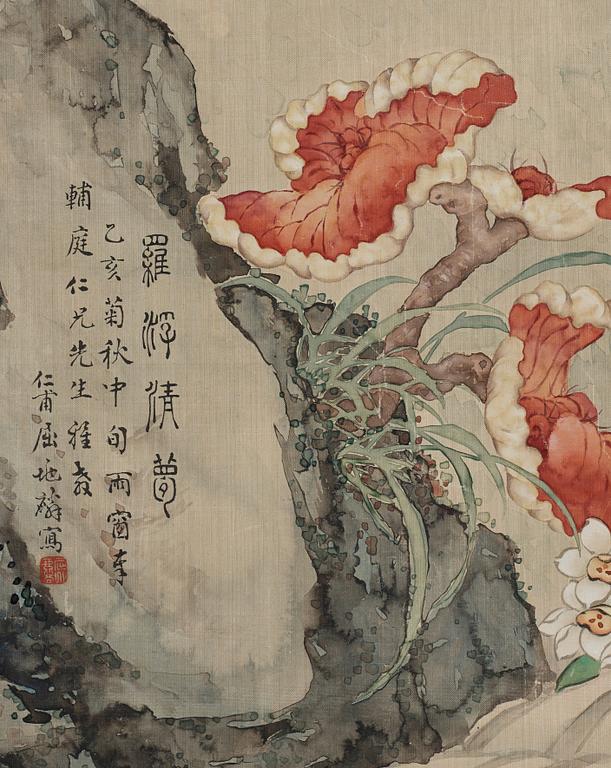 羅浮清夢
乙亥菊秋中旬雨窗奉
輔庭仁兄先生雅教
仁甫屈地麟寫